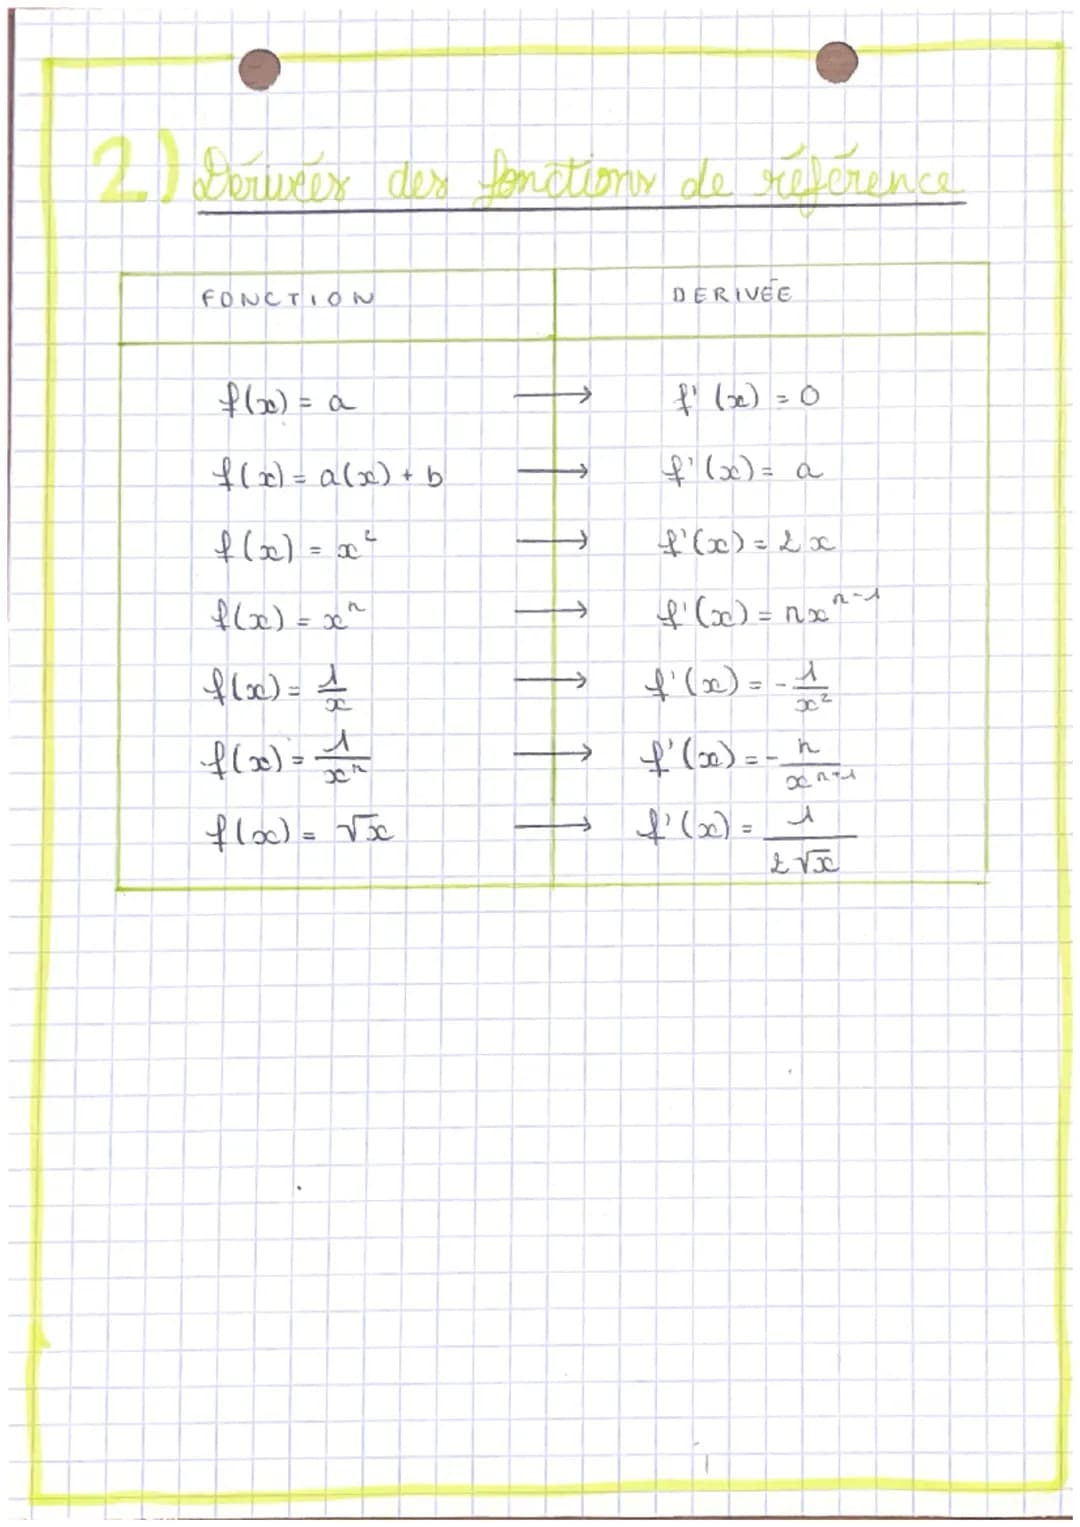 2) Dérivées des fonctions de référence
FONCTION DERIVÉE
f(x) = a → f'(x) = 0
f(x) = a(x) + b → f'(x) = a
f(x) = x² → f'(x) = 2x
f(x) = xⁿ → f'(x) = nxⁿ⁻¹
f(x) = 1/x → f'(x) = -1/x²
f(x) = 1/xⁿ → f'(x) = -n/xⁿ⁺¹
f(x) = √x → f'(x) = 1/2√x